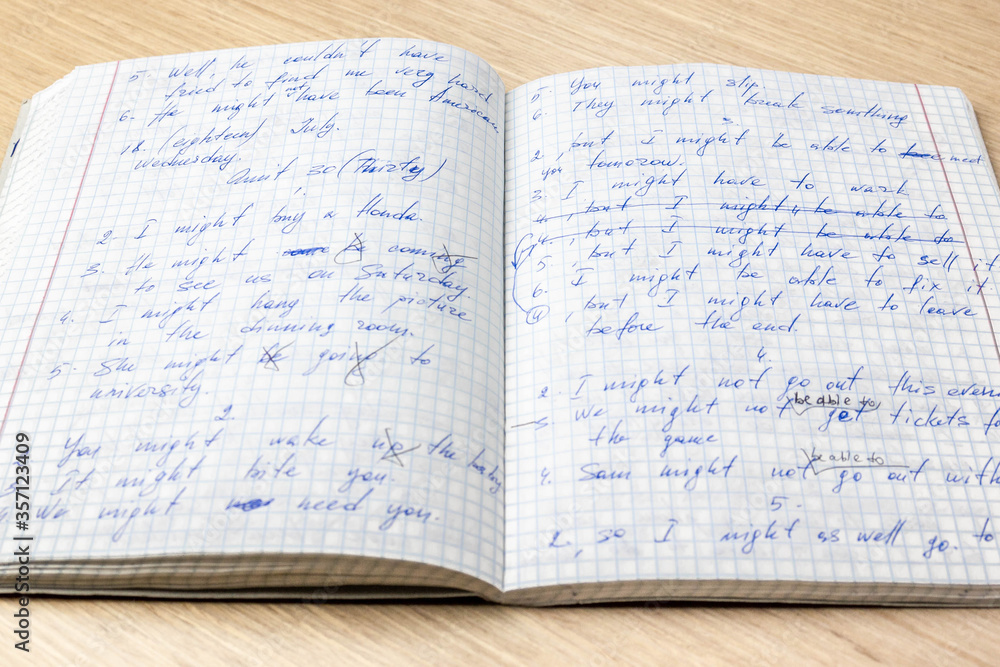 5. Well, he couldn't have
tried to find me very hard
6. He might not have been American
18. (eighteen) July.
Wednesday.
Unit 30 (Thirty)
1
2. I might buy a Honda.
3. He might be coming
to see us on Saturday.
4. I might hang the picture
in the dinning room.
5. She might be going to
university.
2
You might wake up the
It might bite you.
We might need you.
5. You might slip.
6. They might break something
3.
2. , but I might be able to meet
you tomorrow.
3. I might have to wash
4. , but I might be able to
4. , but I might be able to
5. , but I might have to sell it
6. I might be able to fix it
4 , but I might have to leave
before the end.
4.
2. I might not go out this even
3 We might not be able to get tickets fo
the game
4. Sam might not be able to go out with
5.
2. , so I might as well go. to
Adobe Stock | #357123409